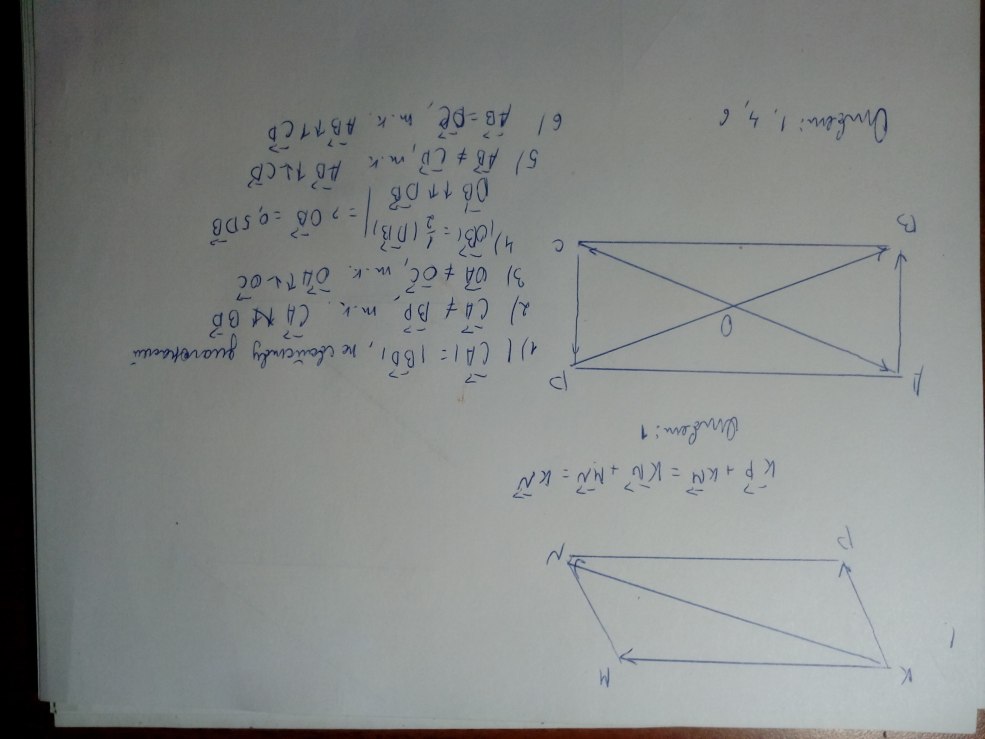 1
K
M
P
N
KP + KM = KN + MN = KN
Ответ: 1
A
D
O
B
C
1) |CA| = |BD|, по свойству диагоналей
2) CA ≠ BD, т.к. CA ⇅ BD
3) OA ≠ OC, т.к. OA ↑↓ OC
4) |OB| = 1/2 |DB|
OB ↑↑ DB | => OB = 0,5DB
5) AB ≠ CD, т.к. AB ↑↓ CD
6) AB = DC, т.к. AB ↑↑ CD
Ответ: 1, 4, 6